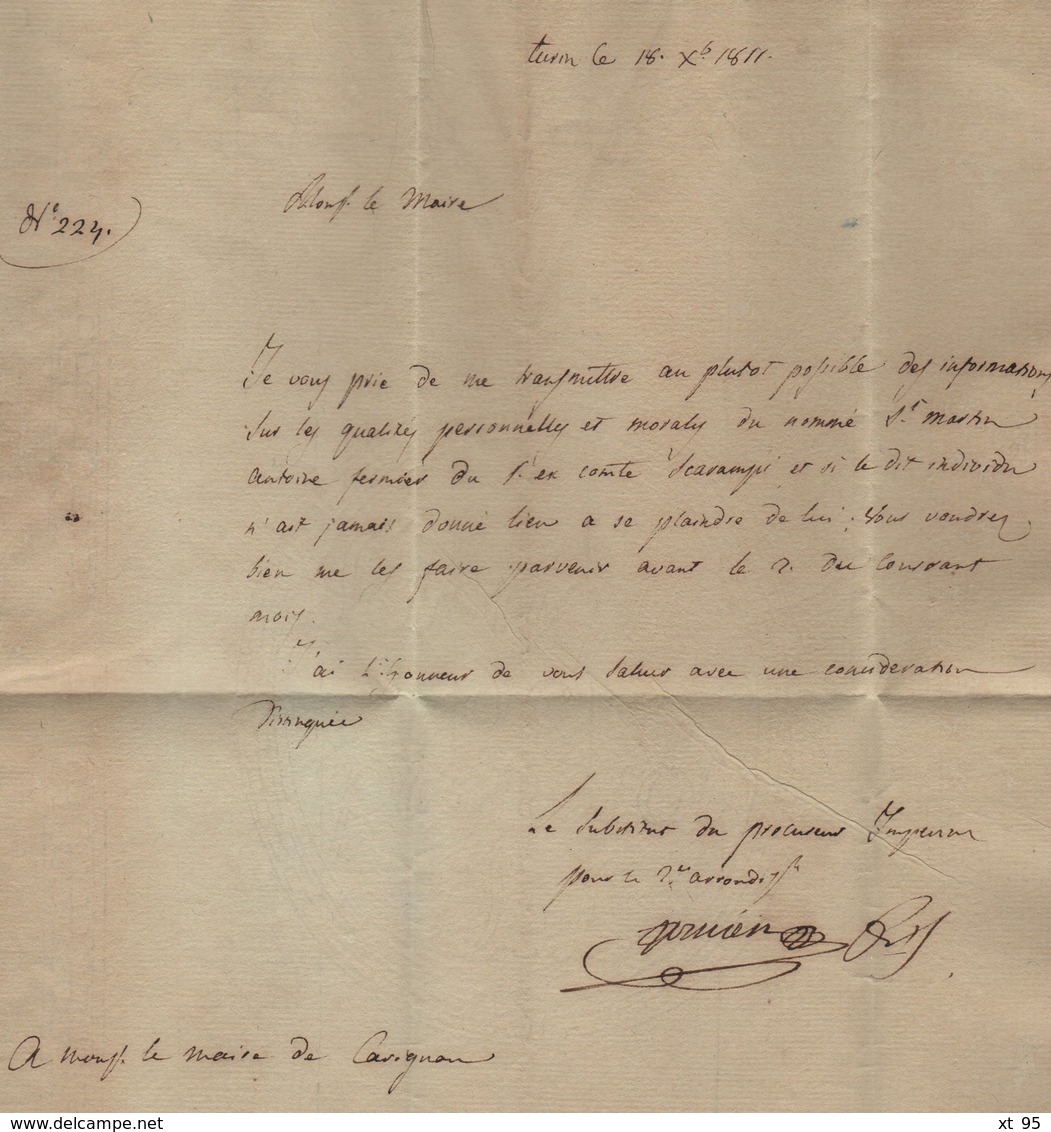 turin le 18. Xb. 1811.
N.e 224.
Mons. le Maire
Je vous prie de me transmettre au plutot possible des informations
sur les qualités personnelles et morales du nommé S.t martin
antoine fermier du S.r ex comte Scarampi et si le dit individu
n'ait jamais donné lieu a se plaindre de lui ; Vous voudrez
bien me les faire parvenir avant le 2. du Courrant
mois.
J'ai l'honneur de vous saluer avec une consideration
distinguée
Le Substitut du procureur Imperial
pour le 2.e arrondiss
A mons. le maire de Carignan
www.delcampe.net
xt 95